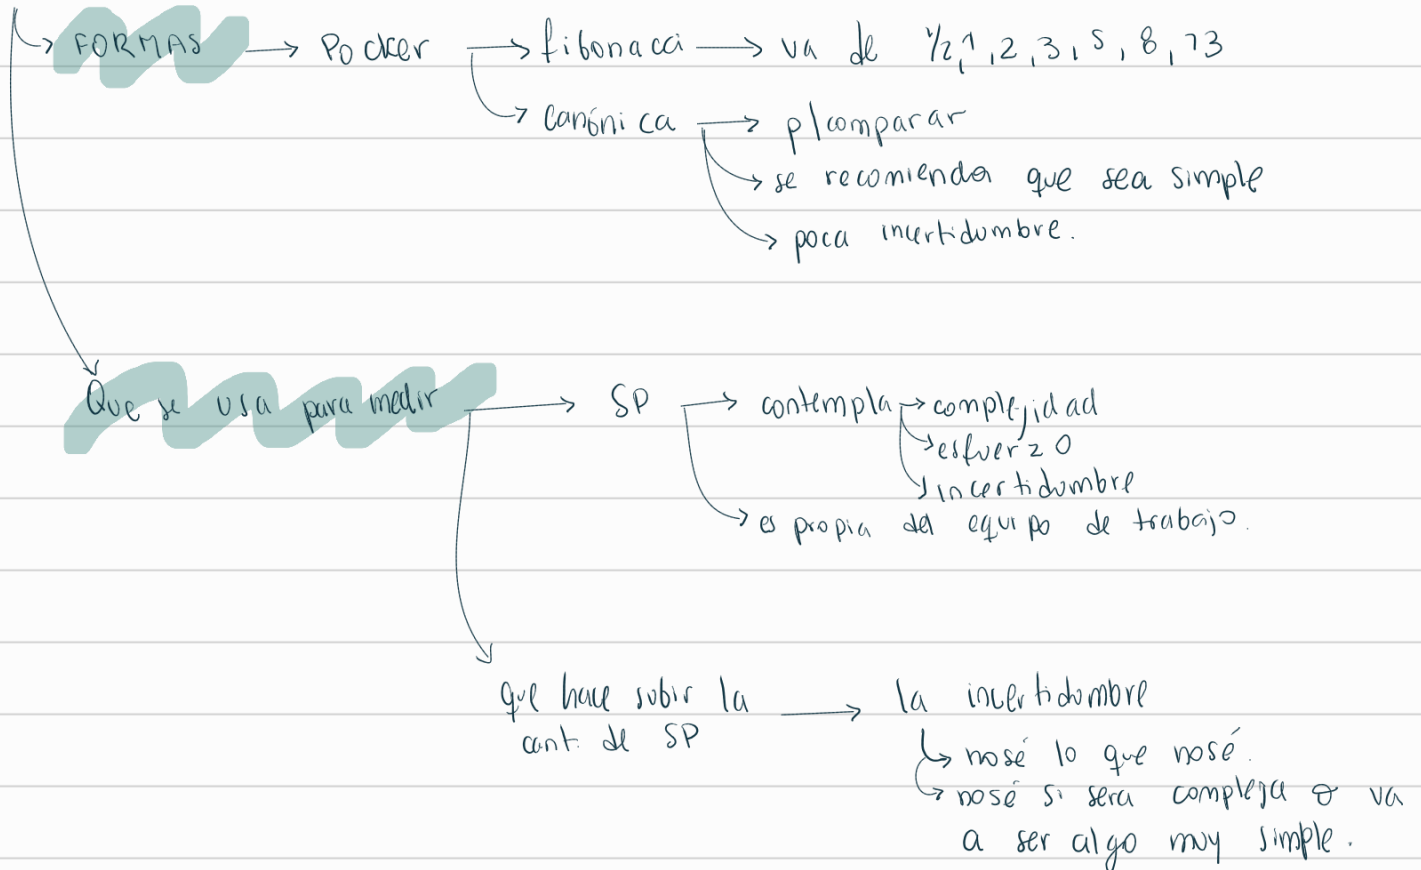 FORMAS → Pocker → fibonacci → va de 1/2, 1, 2, 3, 5, 8, 13
→ Canónica → p/comparar
→ se recomienda que sea simple
→ poca incertidumbre.
Que se usa para medir → SP → contempla → complejidad
→ esfuerzo
→ incertidumbre
→ es propia del equipo de trabajo.
que hace subir la → la incertidumbre
cant. de SP
→ nosé lo que nosé.
→ nosé si sera compleja o va
a ser algo muy simple.